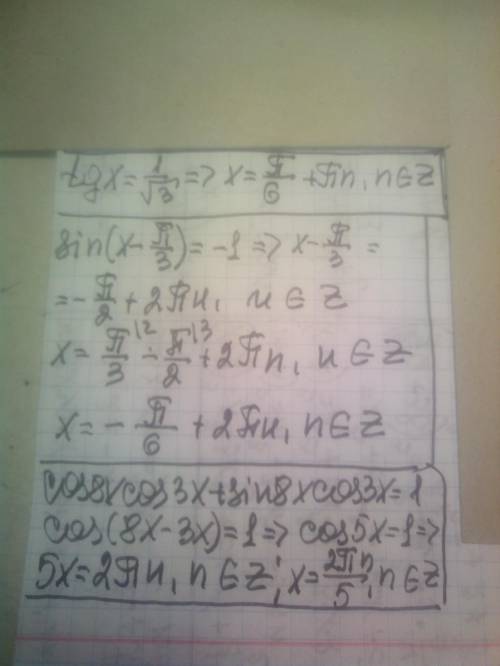 tgx = 1/√3 => x = π/6 + πn, n∈Z
sin(x - π/3) = -1 => x - π/3 =
= -π/2 + 2πn, n∈Z
x = π/3 |2 - π/2 |3 + 2πn, n∈Z
x = - π/6 + 2πn, n∈Z
cos8xcos3x+sin8xcos3x=1
cos(8x-3x)=1=> cos5x=1=>
5x=2πn, n∈Z; x= 2πn/5, n∈Z